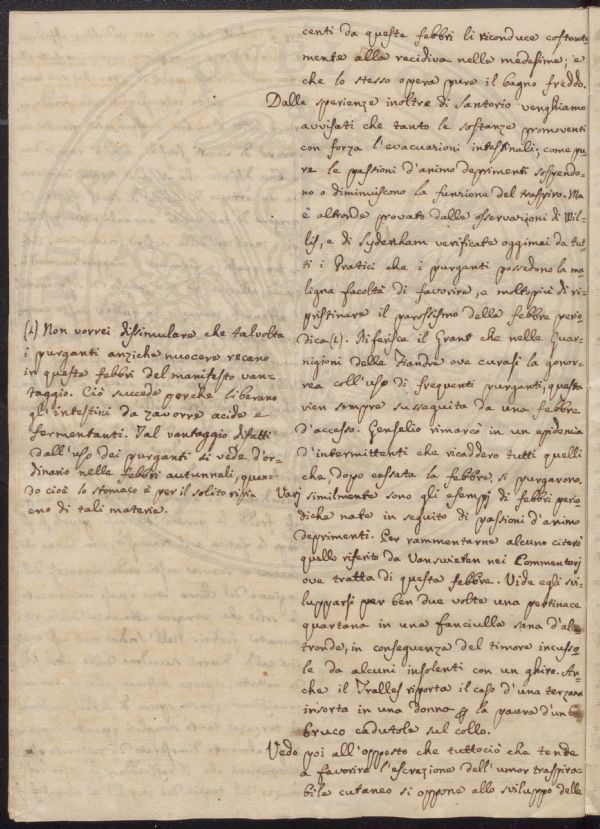 centi da queste febbri li riconduce costante-
mente alla recidiva nelle medesime; e
che lo stesso opera pure il bagno freddo.
Dalle sperienze inoltre di Santorio venghiamo
avvisati che tanto le sostanze promoventi
con forza l'evacuazioni intestinali, come pu-
re le passioni d'animo deprimenti sospendo-
no o diminuiscono la funzione del traspiro. Ma
è altronde provato dalle osservazioni di Wil-
lis, e di Sydenham verificate oggimai da tut-
ti i Pratici che i purganti possedono la ma-
ligna facoltà di favorire, e moltopiù di ri-
pristinare il parossismo delle febbre perio-
dica(1). Riferisce il Grant che nelle Guar-
nigioni delle Fiandre ove curasi la gonor-
rea coll'uso di frequenti purganti, questa
vien sempre susseguita da una febbre
d'accesso. Genselio rimarcò in un epidemia
d'intermittenti che ricaddero tutti quelli
che, dopo cessata la febbre, si purgavono.
Varj similmente sono gli esempj di febbri perio-
diche nate in seguito di passioni d'animo
deprimenti. Per rammentarne alcuno citerò
quello riferito da Vanswieten nei Commentarj
ove tratta di questa febbre. Vide egli svi-
lupparsi per ben due volte una pertinace
quartana in una fanciulla sana d'al-
tronde, in conseguenza del timore incusso
le da alcuni insolenti con un ghiro. An-
che il Tralles riporta il caso d'una terzana
insorta in una donna la paura d'un
bruco cadutole sul collo.
Vedo poi all'opposto che tuttociò che tende
a favorire l'escrezione dell'umor traspira-
bile cutaneo si oppone allo sviluppo delle
(1) Non vorrei dissimulare che talvolta
i purganti anziche nuocere recano
in queste febbri del manifesto van-
taggio. Ciò succede perche liberano
gl'intestini da zavorre acide e
fermentanti. Tal vantaggio difatti
dall'uso dei purganti si vede d'or-
dinario nelle febbri autunnali, quan-
do cioè lo stomaco è per il solito ripi-
eno di tali materie.